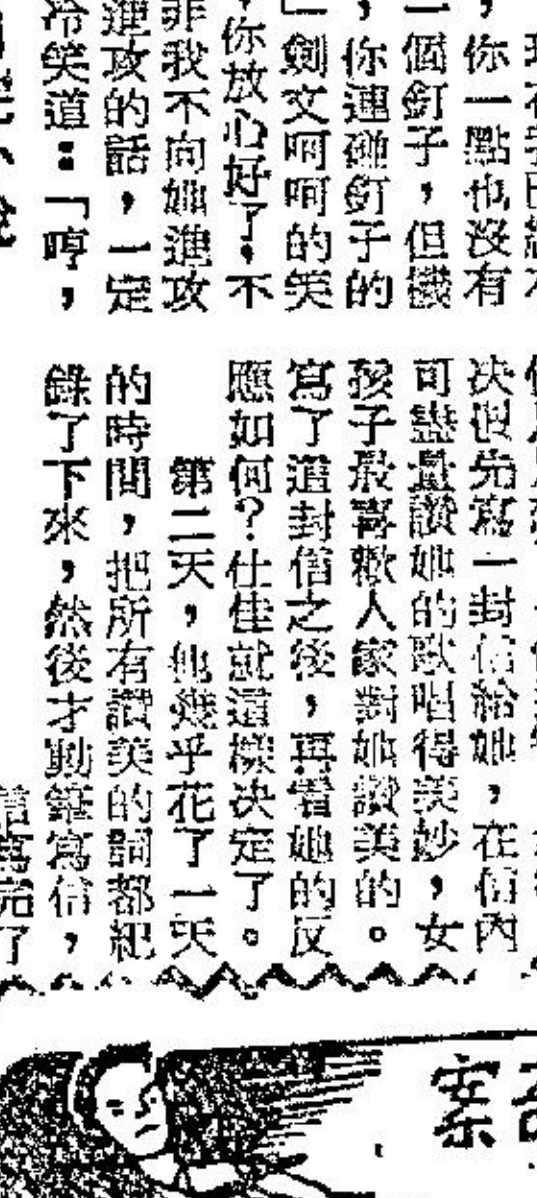 你一點也沒有
一個釘子，但機
，你連碰釘子的
」劍文呵呵的笑
，你放心好了，不
非我不向她進攻
進攻的話，一定
冷笑道：「哼，
決但先寫一封信給她，在信內
可盡量讚她的歌唱得美妙，女
孩子最喜歡人家對她讚美的。
寫了這封信之後，再看她的反
應如何？仕佳就這樣决定了。
第二天，他幾乎花了一天
的時間，把所有讚美的詞都紀
錄了下來，然後才動筆寫信，
信寫完了
案